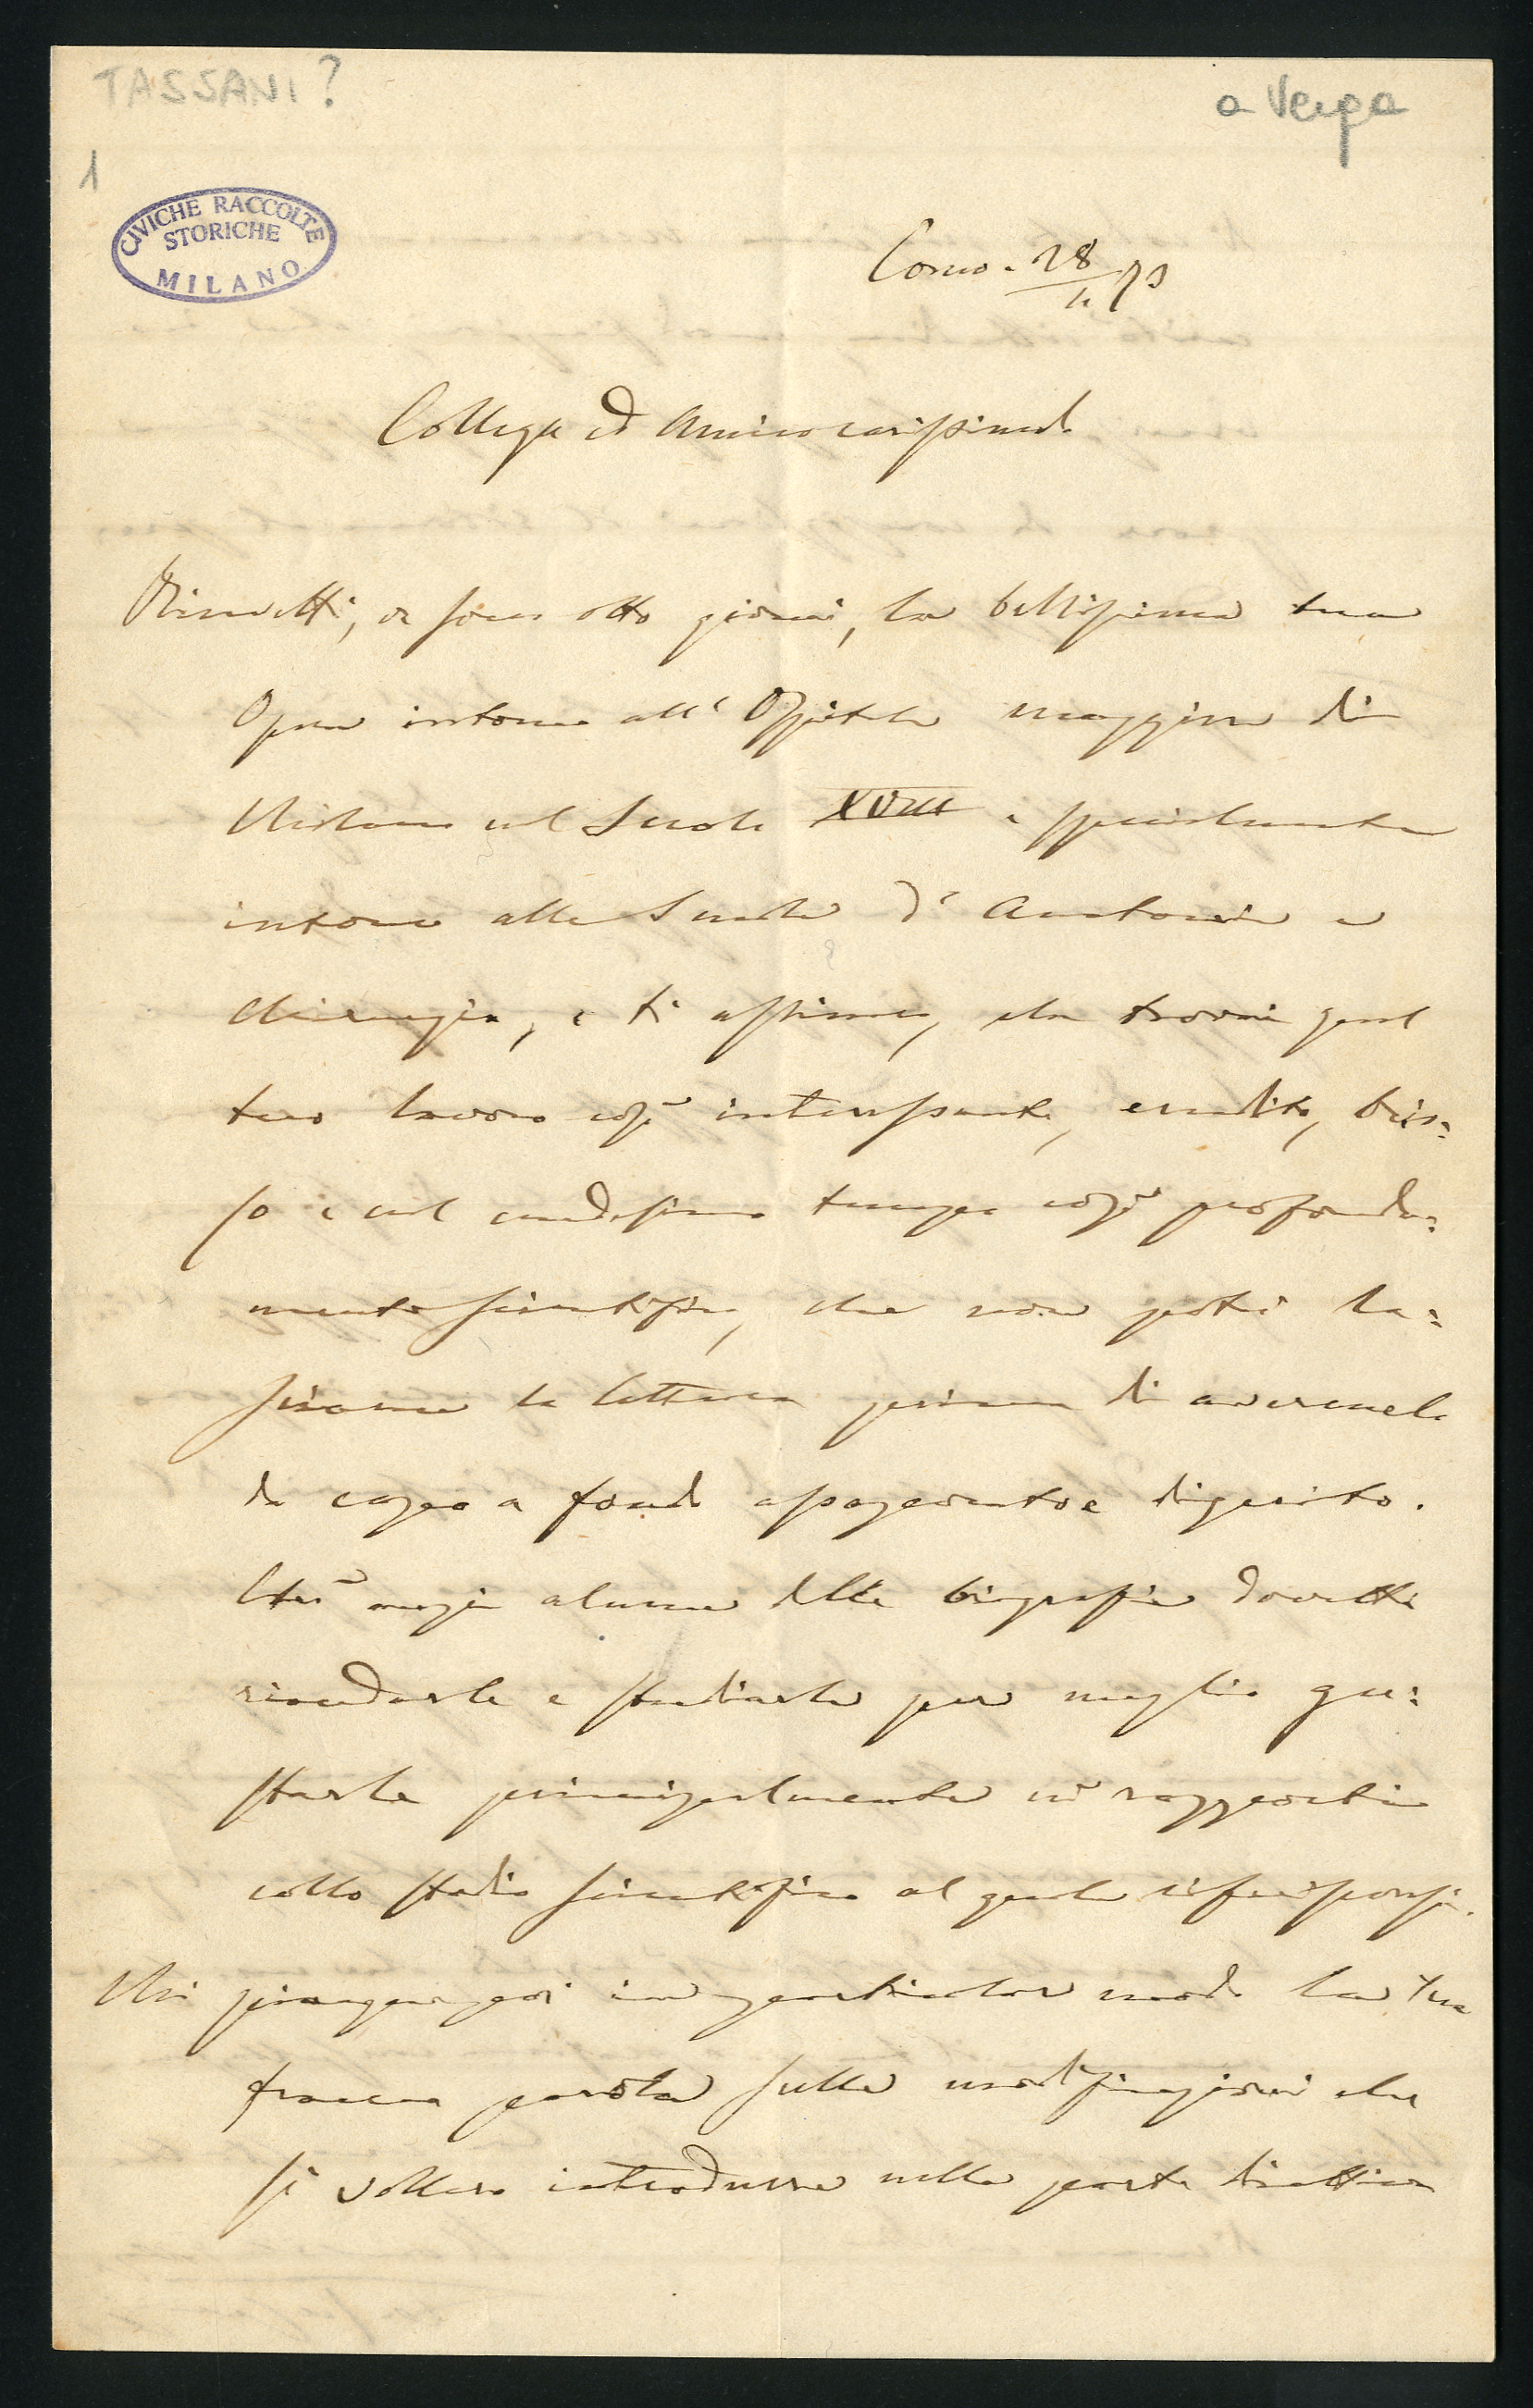 TASSANI?
a Verga
1
CIVICHE RACCOLTE
STORICHE
MILANO
Como. 28/11 73
Collega ed Amico carissimo
Ricevetti, or sono otto giorni, la bellissima tua
Opera intorno all'Ospitale maggiore di
Milano nel Secolo XVIII e specialmente
intorno alla Scuola d'Anatomia e
Chirurgia, e ti assicuro, che trovai quel
tuo lavoro così interessante, erudito, brio=
so e nel medesimo tempo così profonda=
mente scientifico, che non potei la=
sciarne la lettura prima di avermelo
da capo a fondo assaporato e digerito.
Chè anzi alcune delle biografie dovetti
rivederle e studiarle per meglio gu=
starle principalmente nei rapporti
collo stadio scientifico al quale
Mi piacque poi in particolar modo la tua
franca parola sulle modificazioni che
si vollero introdurre nella parte direttiva